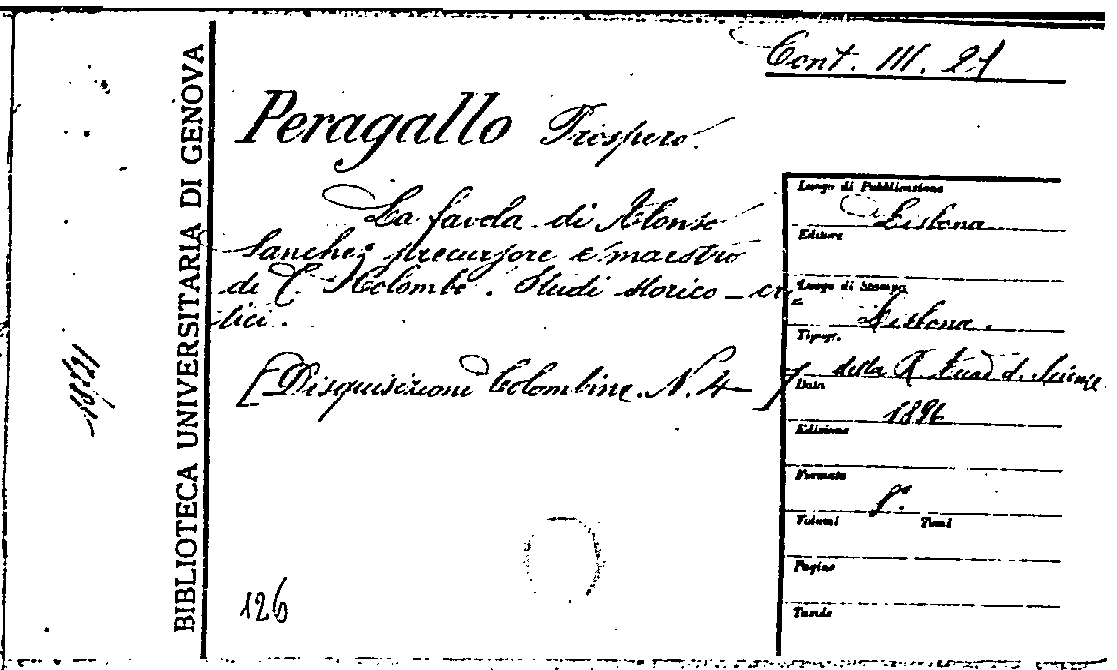 Cont. III. 21
BIBLIOTECA UNIVERSITARIA DI GENOVA
Peragallo Prospero.
La favola di Alonso
Sanchez precursore e maestro
di C. Colombo. Studi storico-cri-
tici.
[Disquisizioni Colombine. N. 4-]
126
Luogo di Pubblicazione
Lisbona
Editore
Luogo di Stampa
Lisbona.
Tipogr.
della R. Acad d. Scienze
Data
1896
Edizione
Formato
8°.
Volumi Tomi
Pagine
Tavole